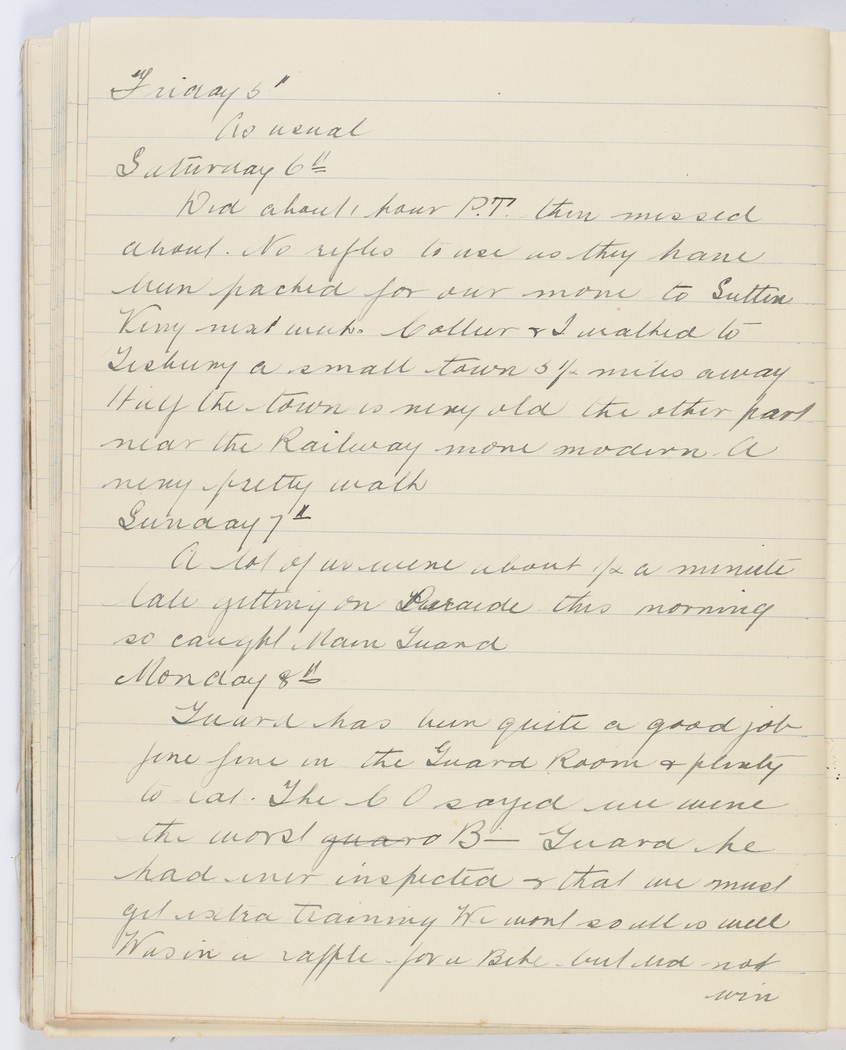 Friday 5"
As usual
Saturday 6th
Did about 1 hour P.T. then messed
about. No rifles to use as they have
been packed for our move to Sutton
Veny next week. Collier & I walked to
Tisbury a small town 3½ miles away
Half the town is very old the other part
near the Railway more modern. A
very pretty walk
Sunday 7th
A lot of us were about ½ a minute
late getting on Parade this morning
so caught Main Guard
Monday 8th
Guard has been quite a good job
fine fire in the Guard Room & plenty
to eat. The C O sayed we were
the worst guard B— Guard he
had ever inspected & that we must
get extra training We wont so all is well
Was in a raffle for a Bike but did not
win